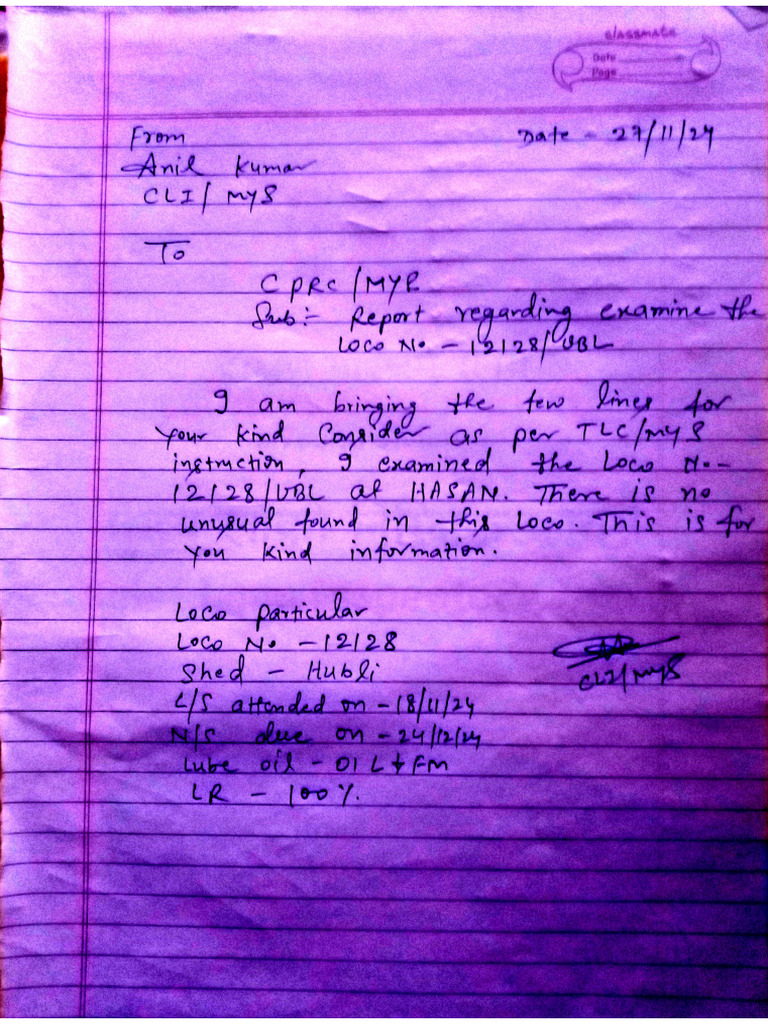 classmate
Date
Page
From
Date - 27/11/24
Anil Kumar
CLI/MYS
To
CPRC/MYR
Sub:- Report regarding examine the
Loco No. - 12128/UBL
I am bringing the few lines for
your kind Consider as per TLC/MYS
instruction, I examined the Loco No.-
12128/UBL at HASAN. There is no
unusual found in this Loco. This is for
you kind information.
Loco particular
Loco No. - 12128
Shed - Hubli
L/S attended on - 18/11/24
CLI/MYS
N/S due on - 24/12/24
Lube oil - 01 L ↓ FM
LR - 100%.